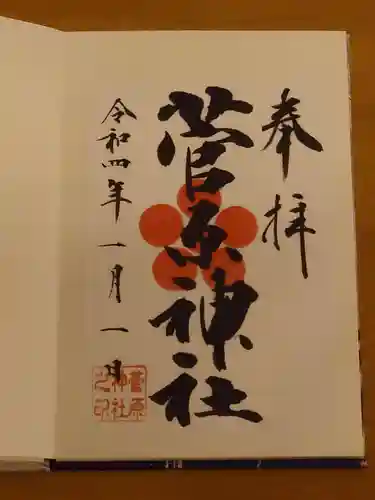 奉拝
菅原神社
令和四年一月一日
菅原
神社
之印